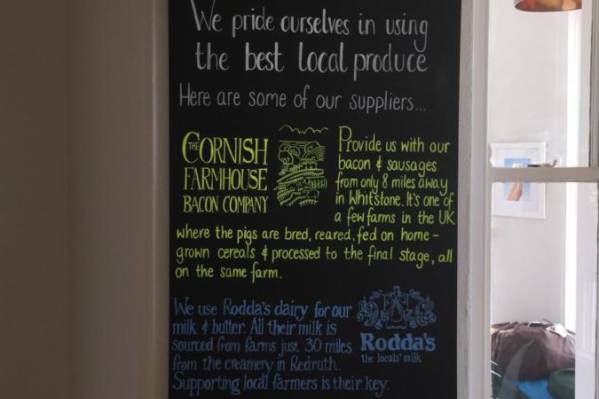 We pride ourselves in using
the best local produce
Here are some of our suppliers...
THE
CORNISH
FARMHOUSE
BACON COMPANY
Provide us with our
bacon & sausages
from only 8 miles away
in Whitstone. It's one of
a few farms in the UK
where the pigs are bred, reared, fed on home-
grown cereals & processed to the final stage, all
on the same farm.
We use Rodda's dairy for our
milk & butter. All their milk is
sourced from farms just 30 miles
from the creamery in Redruth.
Supporting local farmers is their key.
Rodda's
the locals' milk